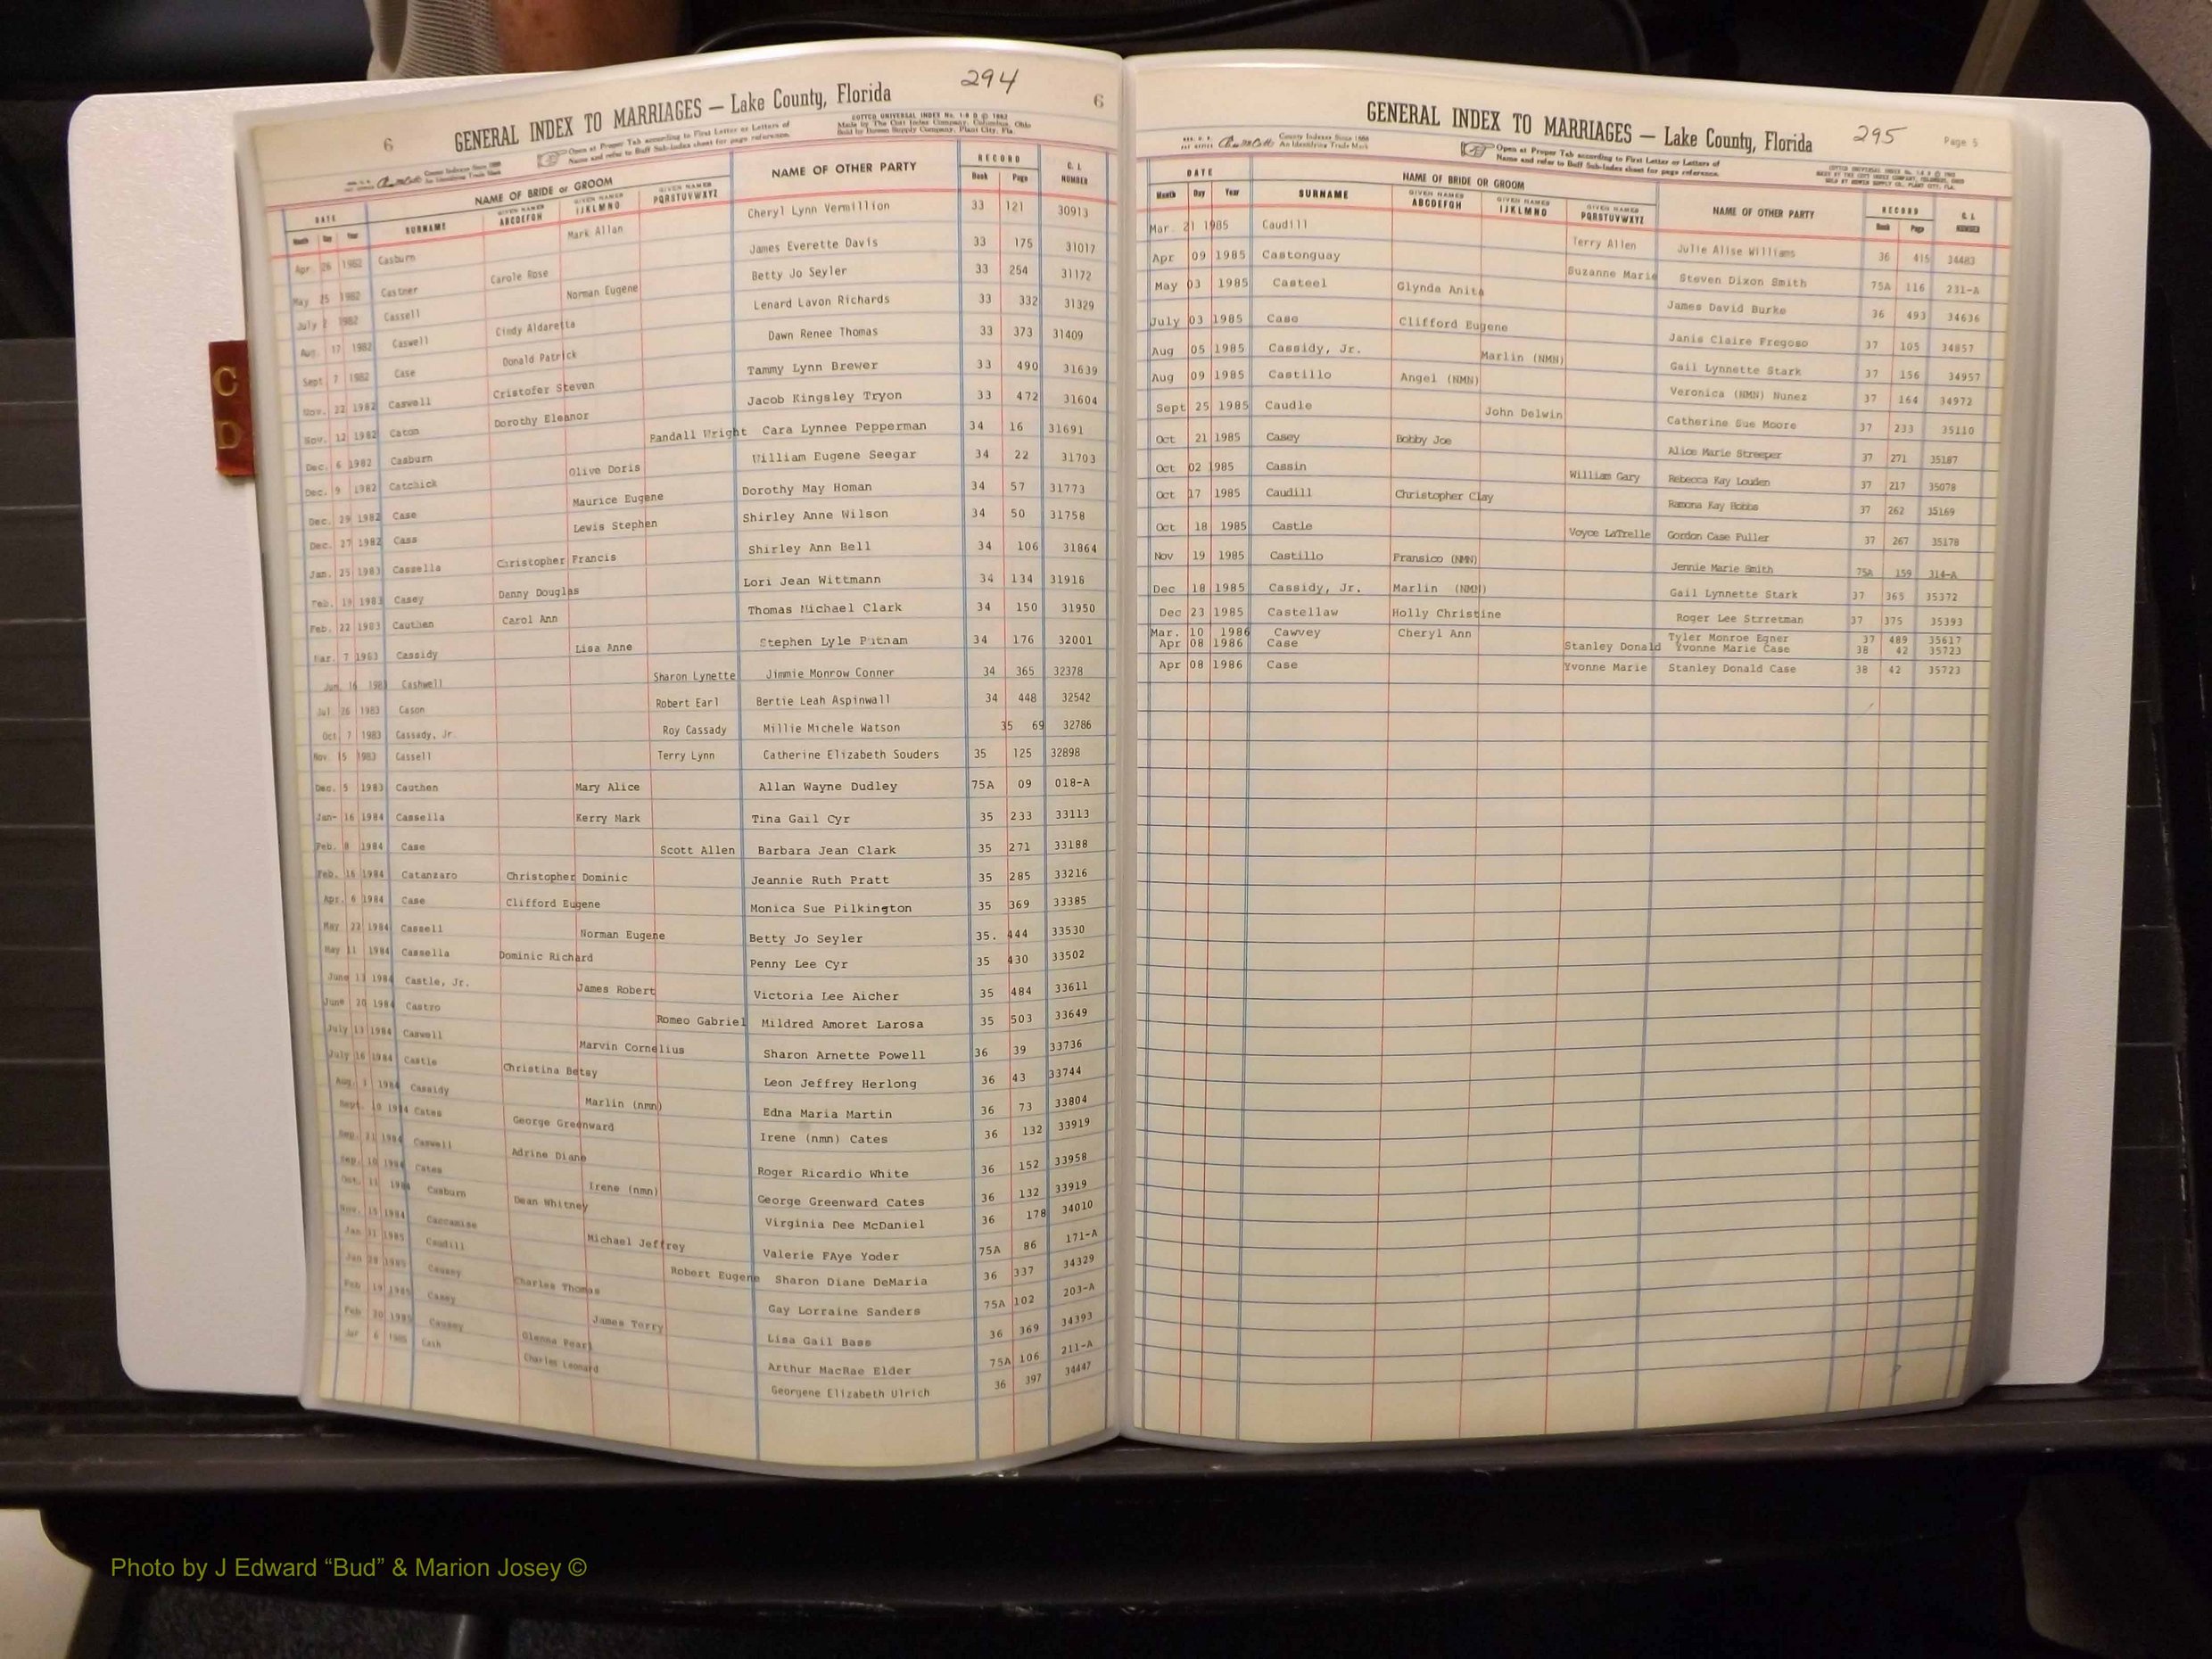 294
6 6
GENERAL INDEX TO MARRIAGES — Lake County, Florida
COTTED UNIVERSAL INDEX No.
Made by The Cott Index Company, Columbus, Ohio
Sold by Dowen Supply Company, Plant City, Fla.
County Indexes Since 1888
An Identifying Trade Mark
Open at Proper Tab according to First Letter or Letters of
Name and refer to Buff Sub-Index sheet for page reference.
DATE NAME OF BRIDE or GROOM NAME OF OTHER PARTY RECORD C. I. NUMBER
Month Day Year SURNAME GIVEN NAMES ABCDEFGH GIVEN NAMES IJKLMNO GIVEN NAMES PQRSTUVWXYZ Book Page
Apr 26 1982 Casburn Mark Allan Cheryl Lynn Vermillion 33 121 30913
May 25 1982 Castner Carole Rose James Everette Davis 33 175 31017
July 2 1982 Cassell Norman Eugene Betty Jo Seyler 33 254 31172
Aug. 17 1982 Caswell Cindy Aldaretta Lenard Lavon Richards 33 332 31329
Sept 7 1982 Case Donald Patrick Dawn Renee Thomas 33 373 31409
Nov. 22 1982 Caswell Cristofer Steven Tammy Lynn Brewer 33 490 31639
Nov. 12 1982 Caton Dorothy Eleanor Jacob Kingsley Tryon 33 472 31604
Dec. 6 1982 Casburn Randall Wright Cara Lynnee Pepperman 34 16 31691
Dec. 9 1982 Catchick Olive Doris William Eugene Seegar 34 22 31703
Dec. 29 1982 Case Maurice Eugene Dorothy May Homan 34 57 31773
Dec. 27 1982 Cass Lewis Stephen Shirley Anne Wilson 34 50 31758
Jan. 25 1983 Cassella Christopher Francis Shirley Ann Bell 34 106 31864
Feb. 19 1983 Casey Danny Douglas Lori Jean Wittmann 34 134 31918
Feb. 22 1983 Cauthen Carol Ann Thomas Michael Clark 34 150 31950
Mar. 7 1983 Cassidy Lisa Anne Stephen Lyle Putnam 34 176 32001
Jun. 16 1983 Cashwell Sharon Lynette Jimmie Monrow Conner 34 365 32378
Jul 26 1983 Cason Robert Earl Bertie Leah Aspinwall 34 448 32542
Oct 7 1983 Cassady, Jr. Roy Cassady Millie Michele Watson 35 69 32786
Nov 15 1983 Cassell Terry Lynn Catherine Elizabeth Souders 35 125 32898
Dec. 5 1983 Cauthen Mary Alice Allan Wayne Dudley 75A 09 018-A
Jan- 16 1984 Cassella Kerry Mark Tina Gail Cyr 35 233 33113
Feb. 8 1984 Case Scott Allen Barbara Jean Clark 35 271 33188
Feb. 16 1984 Catanzaro Christopher Dominic Jeannie Ruth Pratt 35 285 33216
Apr. 6 1984 Case Clifford Eugene Monica Sue Pilkington 35 369 33385
May 22 1984 Cassell Norman Eugene Betty Jo Seyler 35. 444 33530
May 11 1984 Cassella Dominic Richard Penny Lee Cyr 35 430 33502
June 13 1984 Castle, Jr. James Robert Victoria Lee Aicher 35 484 33611
June 20 1984 Castro Romeo Gabriel Mildred Amoret Larosa 35 503 33649
July 13 1984 Caswell Marvin Cornelius Sharon Arnette Powell 36 39 33736
July 16 1984 Castle Christina Betsy Leon Jeffrey Herlong 36 43 33744
Aug. 3 1984 Cassidy Marlin (nmn) Edna Maria Martin 36 73 33804
Sept. 10 1984 Cates George Greenward Irene (nmn) Cates 36 132 33919
Sep. 21 1984 Caswell Adrine Diane Roger Ricardio White 36 152 33958
Sep. 10 1984 Cates Irene (nmn) George Greenward Cates 36 132 33919
Oct. 11 1984 Casburn Dean Whitney Virginia Dee McDaniel 36 178 34010
Nov. 15 1984 Caccamise Michael Jeffrey Valerie FAye Yoder 75A 86 171-A
Jan 31 1985 Caudill Robert Eugene Sharon Diane DeMaria 36 337 34329
Jan 28 1985 Causey Charles Thomas Gay Lorraine Sanders 75A 102 203-A
Feb 19 1985 Casey James Terry Lisa Gail Bass 36 369 34393
Feb 20 1985 Causey Glenna Pearl Arthur MacRae Elder 75A 106 211-A
6 1985 Cash Charles Leonard Georgene Elizabeth Ulrich 36 397 34447
C
D
295 Page 5
GENERAL INDEX TO MARRIAGES — Lake County, Florida
County Indexes Since 1888
An Identifying Trade Mark
Open at Proper Tab according to First Letter or Letters of
Name and refer to Buff Sub-Index sheet for page reference.
DATE NAME OF BRIDE OR GROOM NAME OF OTHER PARTY RECORD C. I. NUMBER
Month Day Year SURNAME GIVEN NAMES ABCDEFGH GIVEN NAMES IJKLMNO GIVEN NAMES PQRSTUVWXYZ Book Page
Mar. 21 1985 Caudill Terry Allen Julie Alise Williams 36 415 34483
Apr 09 1985 Castonguay Suzanne Marie Steven Dixon Smith 75A 116 231-A
May 03 1985 Casteel Glynda Anita James David Burke 36 493 34636
July 03 1985 Case Clifford Eugene Janis Claire Fregoso 37 105 34857
Aug 05 1985 Cassidy, Jr. Marlin (NMN) Gail Lynnette Stark 37 156 34957
Aug 09 1985 Castillo Angel (NMN) Veronica (NMN) Nunez 37 164 34972
Sept 25 1985 Caudle John Delwin Catherine Sue Moore 37 233 35110
Oct 21 1985 Casey Bobby Joe Alice Marie Streeper 37 271 35187
Oct 02 1985 Cassin William Gary Rebecca Kay Louden 37 217 35078
Oct 17 1985 Caudill Christopher Clay Ramona Kay Hobbs 37 262 35169
Oct 18 1985 Castle Voyce LaTrelle Gordon Case Fuller 37 267 35178
Nov 19 1985 Castillo Fransico (NMN) Jennie Marie Smith 75A 159 314-A
Dec 18 1985 Cassidy, Jr. Marlin (NMN) Gail Lynnette Stark 37 365 35372
Dec 23 1985 Castellaw Holly Christine Roger Lee Strretman 37 375 35393
Mar. 10 1986 Cawvey Cheryl Ann Tyler Monroe Egner 37 489 35617
Apr 08 1986 Case Stanley Donald Yvonne Marie Case 38 42 35723
Apr 08 1986 Case Yvonne Marie Stanley Donald Case 38 42 35723
Photo by J Edward “Bud” & Marion Josey ©